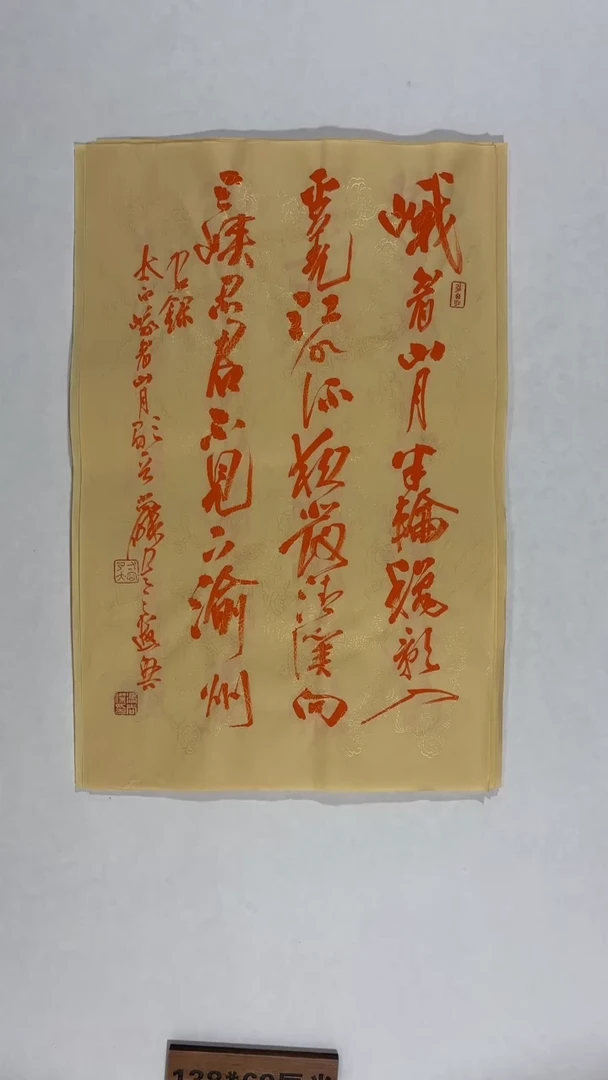 峨眉山月半輪秋影入
平羌江水流夜發清溪向
三峽思君不見下渝州
太白峨眉山月
138*69厘米